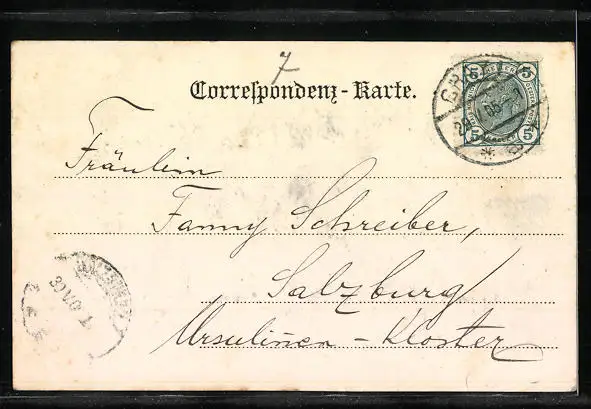 7
Correspondenz-Karte.
5 5
5 5
Fräulein
Fanny Schreiber,
Salzburg
Ursulinen-Kloster